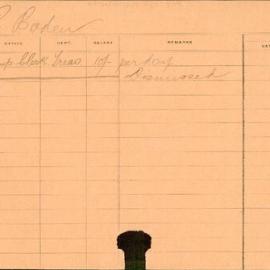 Boden
OFFICE DEPT. SALARY REMARKS
Clerk Treas 10/- per day
Dismissed